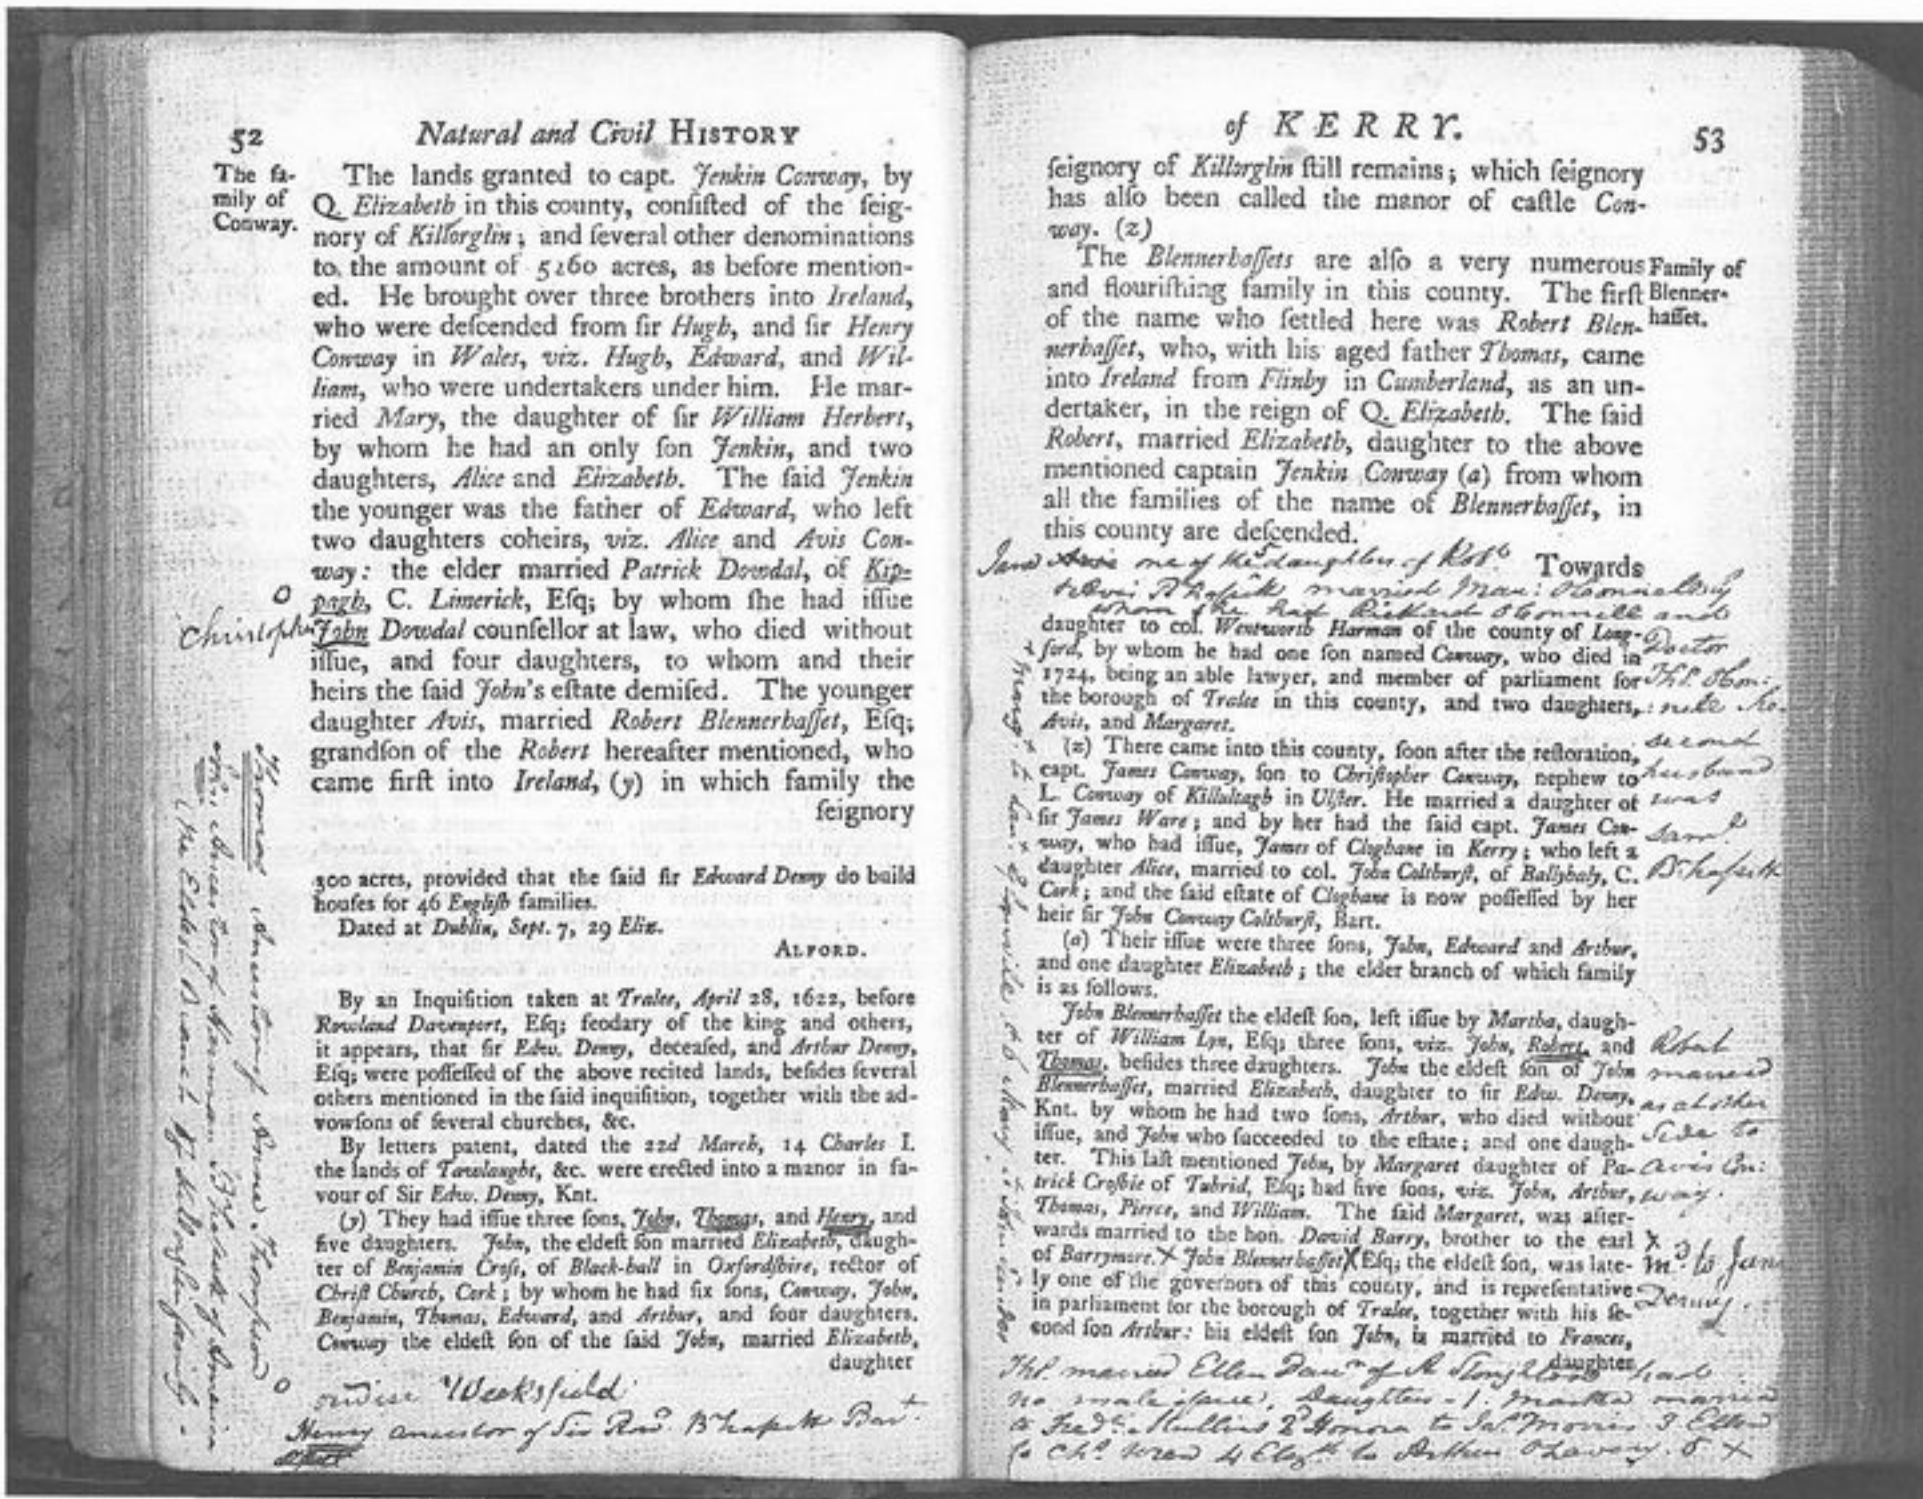 52 Natural and Civil HISTORY
The fa-
mily of
Conway.
The lands granted to capt. Jenkin Conway, by
Q. Elizabeth in this county, consisted of the seig-
nory of Killorglin; and several other denominations
to the amount of 5260 acres, as before mention-
ed. He brought over three brothers into Ireland,
who were descended from sir Hugh, and sir Henry
Conway in Wales, viz. Hugh, Edward, and Wil-
liam, who were undertakers under him. He mar-
ried Mary, the daughter of sir William Herbert,
by whom he had an only son Jenkin, and two
daughters, Alice and Elizabeth. The said Jenkin
the younger was the father of Edward, who left
two daughters coheirs, viz. Alice and Avis Con-
way: the elder married Patrick Dowdal, of Kip-
pagh, C. Limerick, Esq; by whom she had issue
Christopher
John Dowdal counsellor at law, who died without
issue, and four daughters, to whom and their
heirs the said John's estate demised. The younger
daughter Avis, married Robert Blennerhasset, Esq;
grandson of the Robert hereafter mentioned, who
came first into Ireland, (y) in which family the
seignory
300 acres, provided that the said sir Edward Denny do build
houses for 46 English families.
Dated at Dublin, Sept. 7, 29 Eliz.
ALFORD.
By an Inquisition taken at Tralee, April 28, 1622, before
Rowland Davenport, Esq; feodary of the king and others,
it appears, that sir Edw. Denny, deceased, and Arthur Denny,
Esq; were possessed of the above recited lands, besides several
others mentioned in the said inquisition, together with the ad-
vowsons of several churches, &c.
By letters patent, dated the 22d March, 14 Charles I.
the lands of Tawlaught, &c. were erected into a manor in fa-
vour of Sir Edw. Denny, Knt.
(y) They had issue three sons, John, Thomas, and Henry, and
five daughters. John, the eldest son married Elizabeth, daugh-
ter of Benjamin Cross, of Black-hall in Oxfordshire, rector of
Christ Church, Cork; by whom he had six sons, Conway, John,
Benjamin, Thomas, Edward, and Arthur, and four daughters.
Conway the eldest son of the said John, married Elizabeth,
daughter
Weeksfield
Henry ancestor of Sir Row. Bhassett Bart.
Thomas Ancestor of Anne Thompson
John Ancestor of Herman Bhassett of America
the Eldest Branch of Killorglin family
of KERRY. 53
seignory of Killorglin still remains; which seignory
has also been called the manor of castle Con-
way. (z)
Family of
Blenner-
hasset.
The Blennerhassets are also a very numerous
and flourishing family in this county. The first
of the name who settled here was Robert Blen-
nerhasset, who, with his aged father Thomas, came
into Ireland from Flinby in Cumberland, as an un-
dertaker, in the reign of Q. Elizabeth. The said
Robert, married Elizabeth, daughter to the above
mentioned captain Jenkin Conway (a) from whom
all the families of the name of Blennerhasset, in
this county are descended.
Towards
Jane Avis one of the 5 daughters of Robt.
& Avis Bhassett married Mau: OConnell by
whom she had Rickard OConnell and
Doctor
second
husband
was
Saml.
Bhassett
daughter to col. Wentworth Harman of the county of Long-
ford, by whom he had one son named Conway, who died in
1724, being an able lawyer, and member of parliament for
the borough of Tralee in this county, and two daughters,
Avis, and Margaret.
(z) There came into this county, soon after the restoration,
capt. James Conway, son to Christopher Conway, nephew to
L. Conway of Killultagh in Ulster. He married a daughter of
sir James Ware; and by her had the said capt. James Con-
way, who had issue, James of Cloghane in Kerry; who left a
daughter Alice, married to col. John Colthurst, of Ballyhaly, C.
Cork; and the said estate of Cloghane is now possessed by her
heir sir John Conway Colthurst, Bart.
(a) Their issue were three sons, John, Edward and Arthur,
and one daughter Elizabeth; the elder branch of which family
is as follows.
John Blennerhasset the eldest son, left issue by Martha, daugh-
ter of William Lyn, Esq; three sons, viz. John, Robert, and
Thomas, besides three daughters. John the eldest son of John
Blennerhasset, married Elizabeth, daughter to sir Edw. Denny,
Knt. by whom he had two sons, Arthur, who died without
issue, and John who succeeded to the estate; and one daugh-
ter. This last mentioned John, by Margaret daughter of Pa-
trick Crosbie of Tubrid, Esq; had five sons, viz. John, Arthur,
Thomas, Pierce, and William. The said Margaret, was after-
wards married to the hon. David Barry, brother to the earl
of Barrymore. X John Blennerhasset X Esq; the eldest son, was late-
ly one of the governors of this county, and is representative
in parliament for the borough of Tralee, together with his se-
cond son Arthur: his eldest son John, is married to Frances,
daughter
Robert
married
as at other
side to
Avis Con:
way.
X md. to Jane
Denny.
Ths. married Ellen Daur. of A Stoughton had
no male issue, Daughters - 1. Martha married
to Fredk. Mullins 2d Honora to Jas. Morris 3 Ellen
to Chs. Wren 4 Elizth. to Arthur OLavery. 5 X